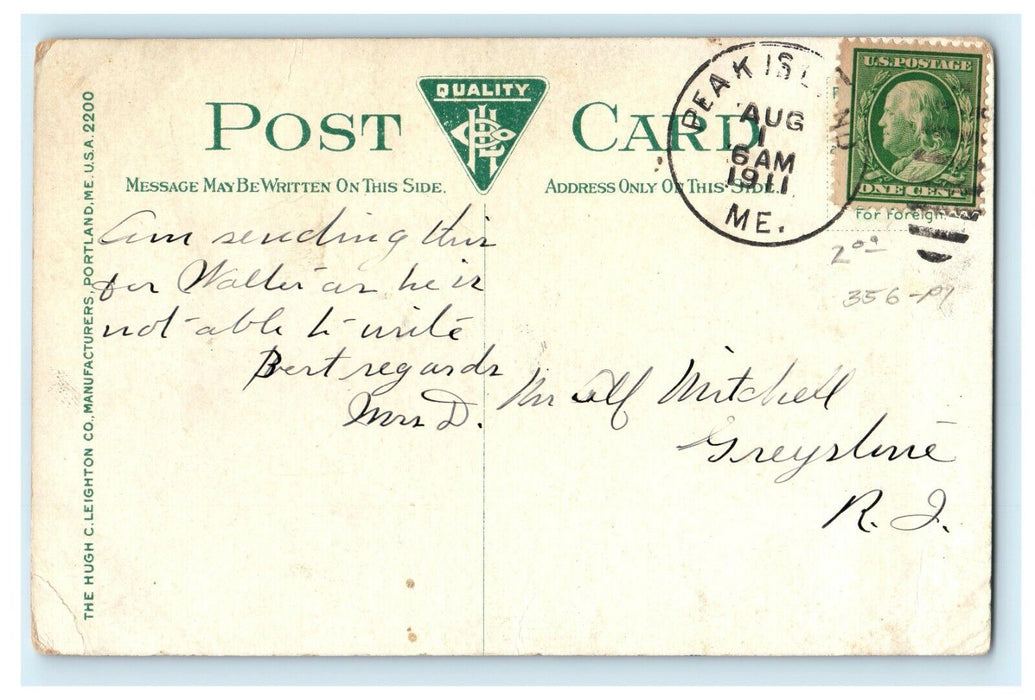 POST CARD
QUALITY
MESSAGE MAY BE WRITTEN ON THIS SIDE.
ADDRESS ONLY ON THIS SIDE.
PEAK ISLAND
AUG
1
6 AM
1911
ME.
U.S. POSTAGE
ONE CENT
For Foreign.
THE HUGH C. LEIGHTON CO., MANUFACTURERS, PORTLAND, ME. U.S.A. 2200
Am sending this
for Walter as he is
not able to write
Best regards
Mrs D.
Mr Alf Mitchell
Greystone
R. I.
356-